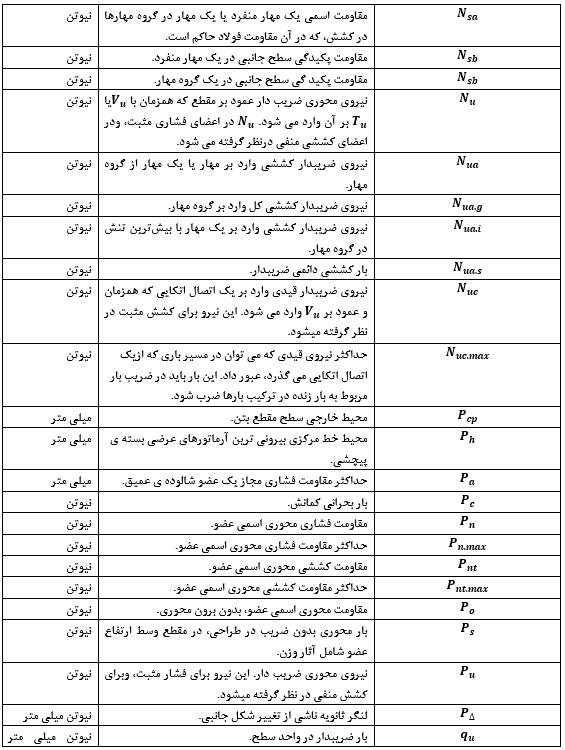 N_sa مقاومت اسمی یک مهار منفرد یا یک مهار در گروه مهارها نیوتن
در کشش، که در آن مقاومت فولاد حاکم است.
N_sb مقاومت پکیدگی سطح جانبی در یک مهار منفرد. نیوتن
N_sb مقاومت پکید گی سطح جانبی در یک گروه مهار. نیوتن
N_u نیروی محوری ضریب دار عمود بر مقطع که همزمان با V_u یا نیوتن
T_u بر آن وارد می شود. N_u در اعضای فشاری مثبت، ودر
اعضای کششی منفی درنظر گرفته می شود.
N_ua نیروی ضریبدار کششی وارد بر مهار یا یک مهار از گروه نیوتن
مهار.
N_ua.g نیروی ضریبدار کششی کل وارد بر گروه مهار. نیوتن
N_ua.i نیروی ضریبدار کششی وارد بر یک مهار با بیش‌ترین تنش نیوتن
در گروه مهار.
N_ua.s بار کششی دائمی ضریبدار. نیوتن
N_uc نیروی ضریبدار قیدی وارد بر یک اتصال اتکایی که همزمان نیوتن
و عمود بر V_u وارد می شود. این نیرو برای کشش مثبت در
نظر گرفته میشود.
N_uc.max حداکثر نیروی قیدی که می توان در مسیر باری که ازیک نیوتن
اتصال اتکایی می گذرد، عبور داد. این بار باید در ضریب بار
مربوط به بار زنده در ترکیب بارها ضرب شود.
P_cp محیط خارجی سطح مقطع بتن. میلی متر
P_h محیط خط مرکزی بیرونی ترین آرماتورهای عرضی بسته ی میلی متر
پیچشی.
P_a حداکثر مقاومت فشاری مجاز یک عضو شالوده ی عمیق. میلی متر
P_c بار بحرانی کمانش. نیوتن
P_n مقاومت فشاری محوری اسمی عضو. نیوتن
P_n.max حداکثر مقاومت فشاری محوری اسمی عضو. نیوتن
P_nt مقاومت کششی محوری اسمی عضو. نیوتن
P_nt.max حداکثر مقاومت کششی محوری اسمی عضو. نیوتن
P_o مقاومت محوری اسمی عضو، بدون برون محوری. نیوتن
P_s بار محوری بدون ضریب در طراحی، در مقطع وسط ارتفاع نیوتن
عضو شامل آثار وزن.
P_u نیروی محوری ضریب دار. این نیرو برای فشار مثبت، وبرای نیوتن
کشش منفی در نظر گرفته میشود.
P_Δ لنگر ثانویه ناشی از تغییر شکل جانبی. نیوتن میلی متر
q_u بار ضریبدار در واحد سطح. نیوتن میلی متر